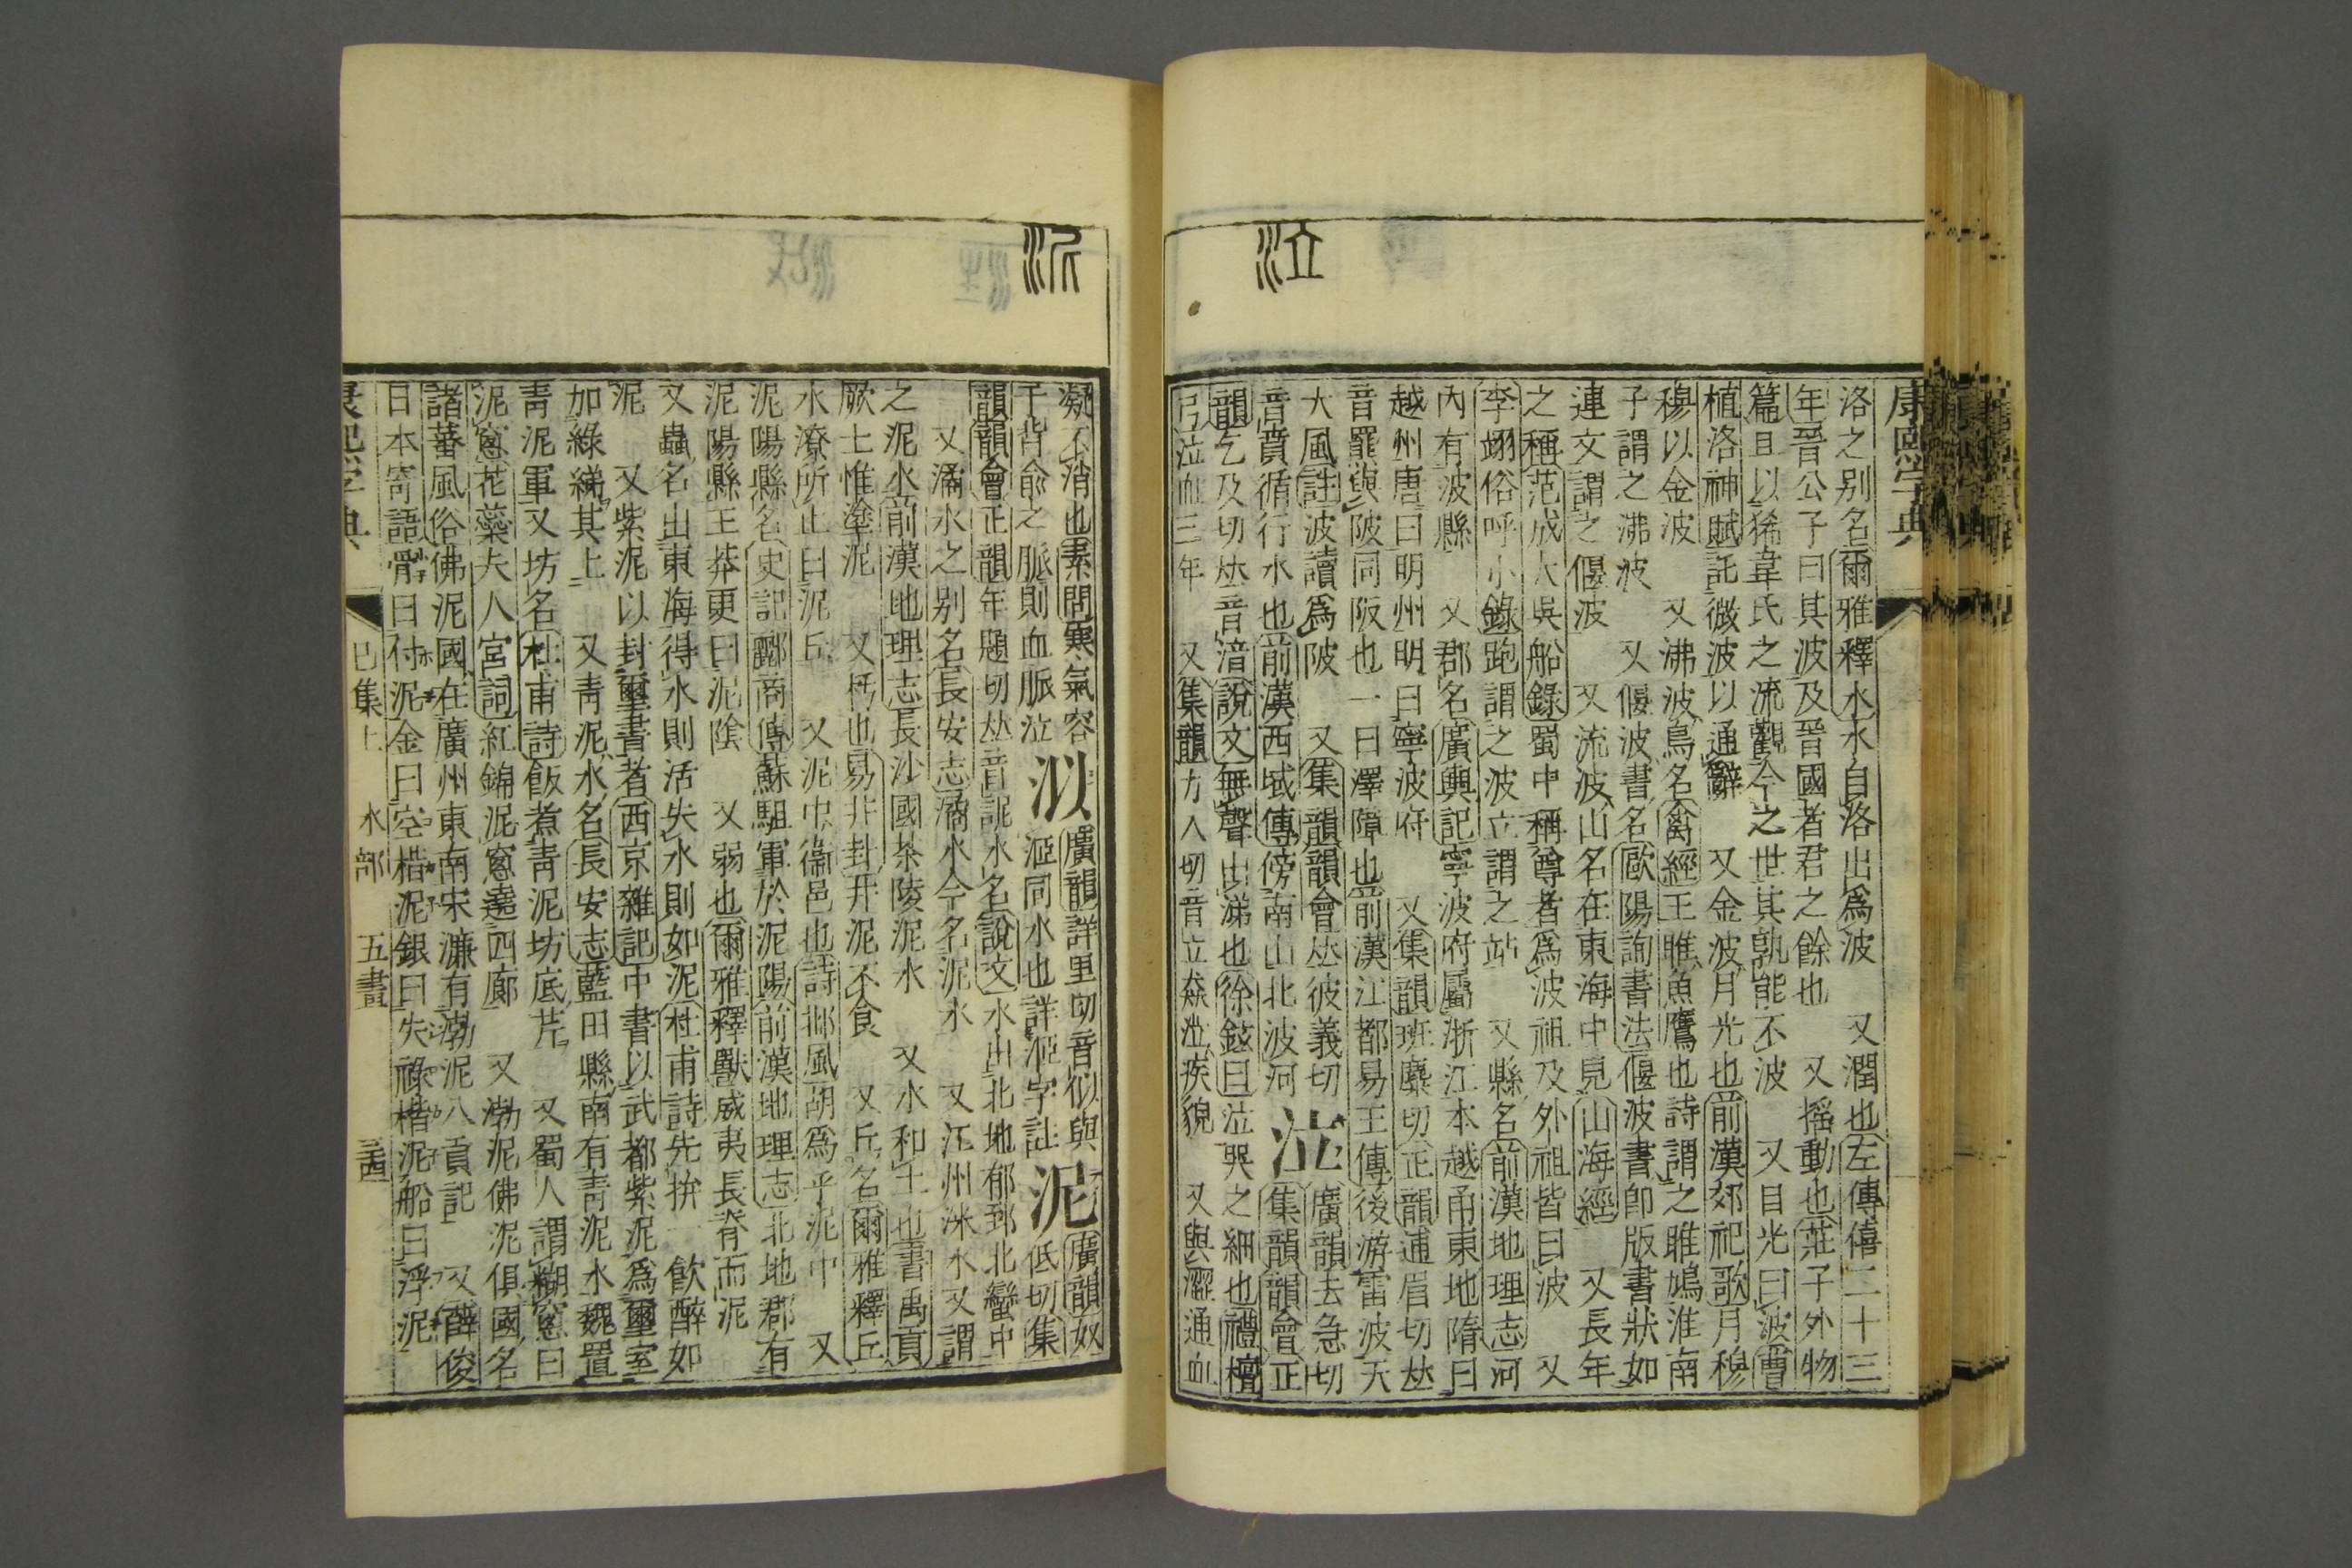 泣
康熙字典
洛之别名爾雅釋水水自洛出爲波　又潤也左傳僖二十三
年晉公子曰其波及晉國者君之餘也　又搖動也莊子外物
篇且以狶韋氏之流觀今之世其孰能不波　又目光曰波曹
植洛神賦託微波以通辭　又金波月光也前漢郊祀歌月穆
穆以金波　又沸波鳥名禽經王雎魚鷹也詩謂之雎鳩淮南
子謂之沸波　又偃波書名歐陽詢書法偃波書卽版書狀如
連文謂之偃波　又流波山名在東海中見山海經　又長年
之稱范成大吳船錄蜀中稱尊者爲波祖及外祖皆曰波　又
李翊俗呼小錄跑謂之波立謂之站　又縣名前漢地理志河
內有波縣　又郡名廣輿記寧波府屬浙江本越甬東地隋曰
越州唐曰明州明曰寧波府　又集韻班麋切正韻逋眉切𠀤
音羆與陂同阪也一曰澤障也前漢江都易王傳後游雷波天
大風註波讀爲陂　又集韻韻會𠀤彼義切
音賁循行水也前漢西域傳傍南山北波河
泣
廣韻去急切
集韻韻會正
韻乞及切𠀤音湆說文無聲出涕也徐鉉曰泣哭之細也禮檀
弓泣血三年　又集韻力入切音立猋泣疾貌　又與澀通血
泥
凝不消也素問寒氣容
于背兪之脈則血脈泣
泤
廣韻詳里切音似與
洍同水也詳洍字註
泥
廣韻奴
低切集
韻韻會正韻年題切𠀤音䛏水名說文水出北地郁郅北蠻中
又滴水之别名長安志滴水今名泥水　又江州沬水又謂
之泥水前漢地理志長沙國茶陵泥水　又水和土也書禹貢
厥土惟塗泥　又杇也易井卦井泥不食　又丘名爾雅釋丘
水潦所止曰泥丘　又泥中衞邑也詩邶風胡爲乎泥中　又
泥陽縣名史記酈商傳蘇駔軍於泥陽前漢地理志北地郡有
泥陽縣王莽更曰泥陰　又弱也爾雅釋獸威夷長脊而泥
又蟲名出東海得水則活失水則如泥杜甫詩先拚一飮醉如
泥　又紫泥以封璽書者西京雜記中書以武都紫泥爲璽室
加綠綈其上　又靑泥水名長安志藍田縣南有靑泥水魏置
靑泥軍又坊名杜甫詩飯煮靑泥坊底芹　又蜀人謂糊窻曰
泥窻花蘂夫人宮詞紅錦泥窻遶四廊　又渤泥佛泥俱國名
諸蕃風俗佛泥國在廣州東南宋濂有渤泥入貢記　又薛俊
日本寄語骨曰付泥金曰空楷泥銀曰失祿楷泥船曰浮泥
康熙字典
巳集上　水部　五畫